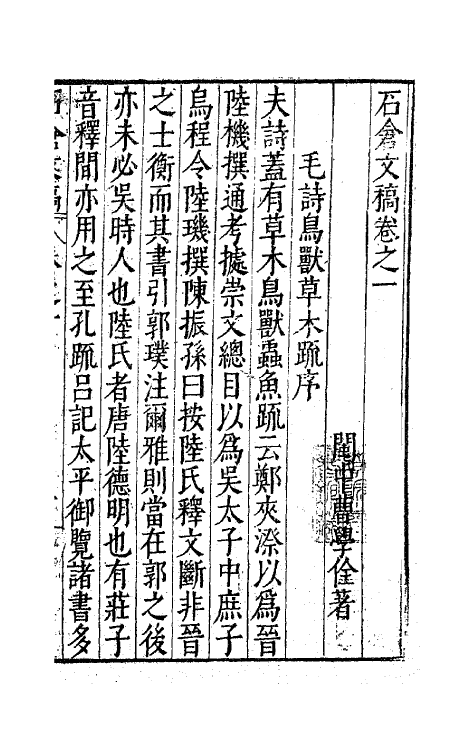 石倉文稿卷之一
閩中曹學佺著
毛詩鳥獸草木疏序
夫詩蓋有草木鳥獸蟲魚疏云鄭夾漈以為晉
陸機撰通考㨿崇文總目以為吳太子中庶子
烏程令陸璣撰陳振孫曰按陸氏釋文斷非晉
之士衡而其書引郭璞注爾雅則當在郭之後
亦未必吳時人也陸氏者唐陸德明也有莊子
音釋間亦用之至孔疏呂記太平御覽諸書多